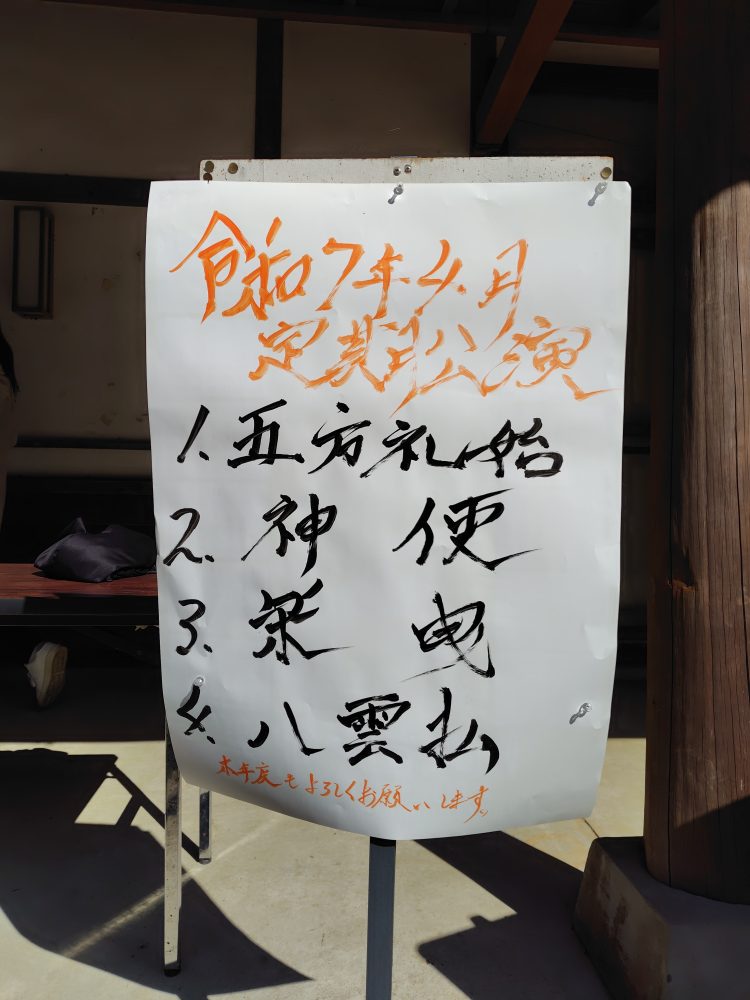 令和7年4月
定期公演
1. 五方礼始
2. 神使
3. 柴曳
4. 八雲払
本年度もよろしくお願いします